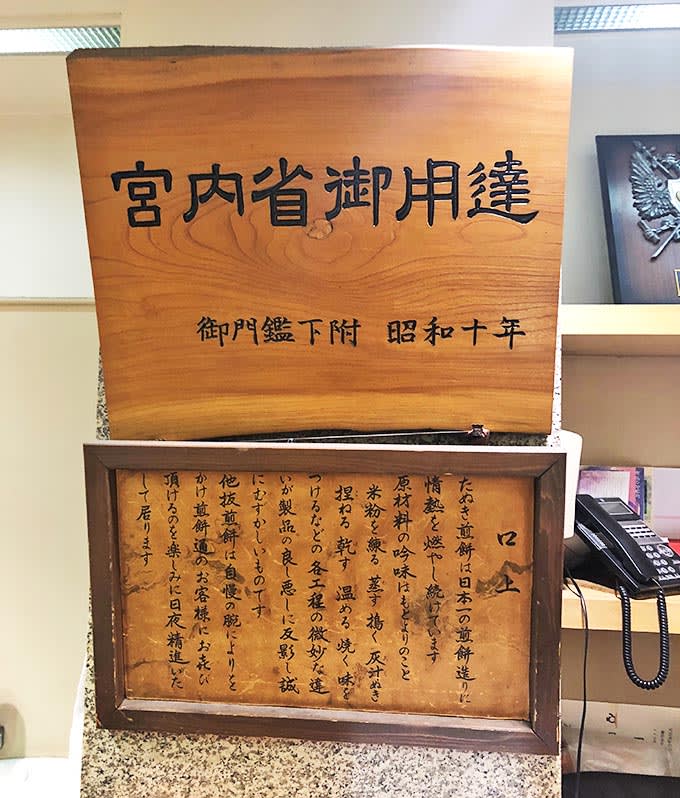 宮内省御用達
御門鑑下附 昭和十年
口上
たぬき煎餅は日本一の煎餅造りに
情熱を燃やし続けています
原材料の吟味はもとよりのこと
米粉を練る 蒸す 搗く 灰汁ぬき
捏ねる 乾す 温める 焼く 味を
つけるなどの各工程の微妙な違
いが製品の良し悪しに反影し誠
にむずかしいものです
他抜煎餅は自慢の腕によりをと
かけ煎餅通のお客様にお喜び
頂けるのを楽しみに日夜精進いた
して居ります